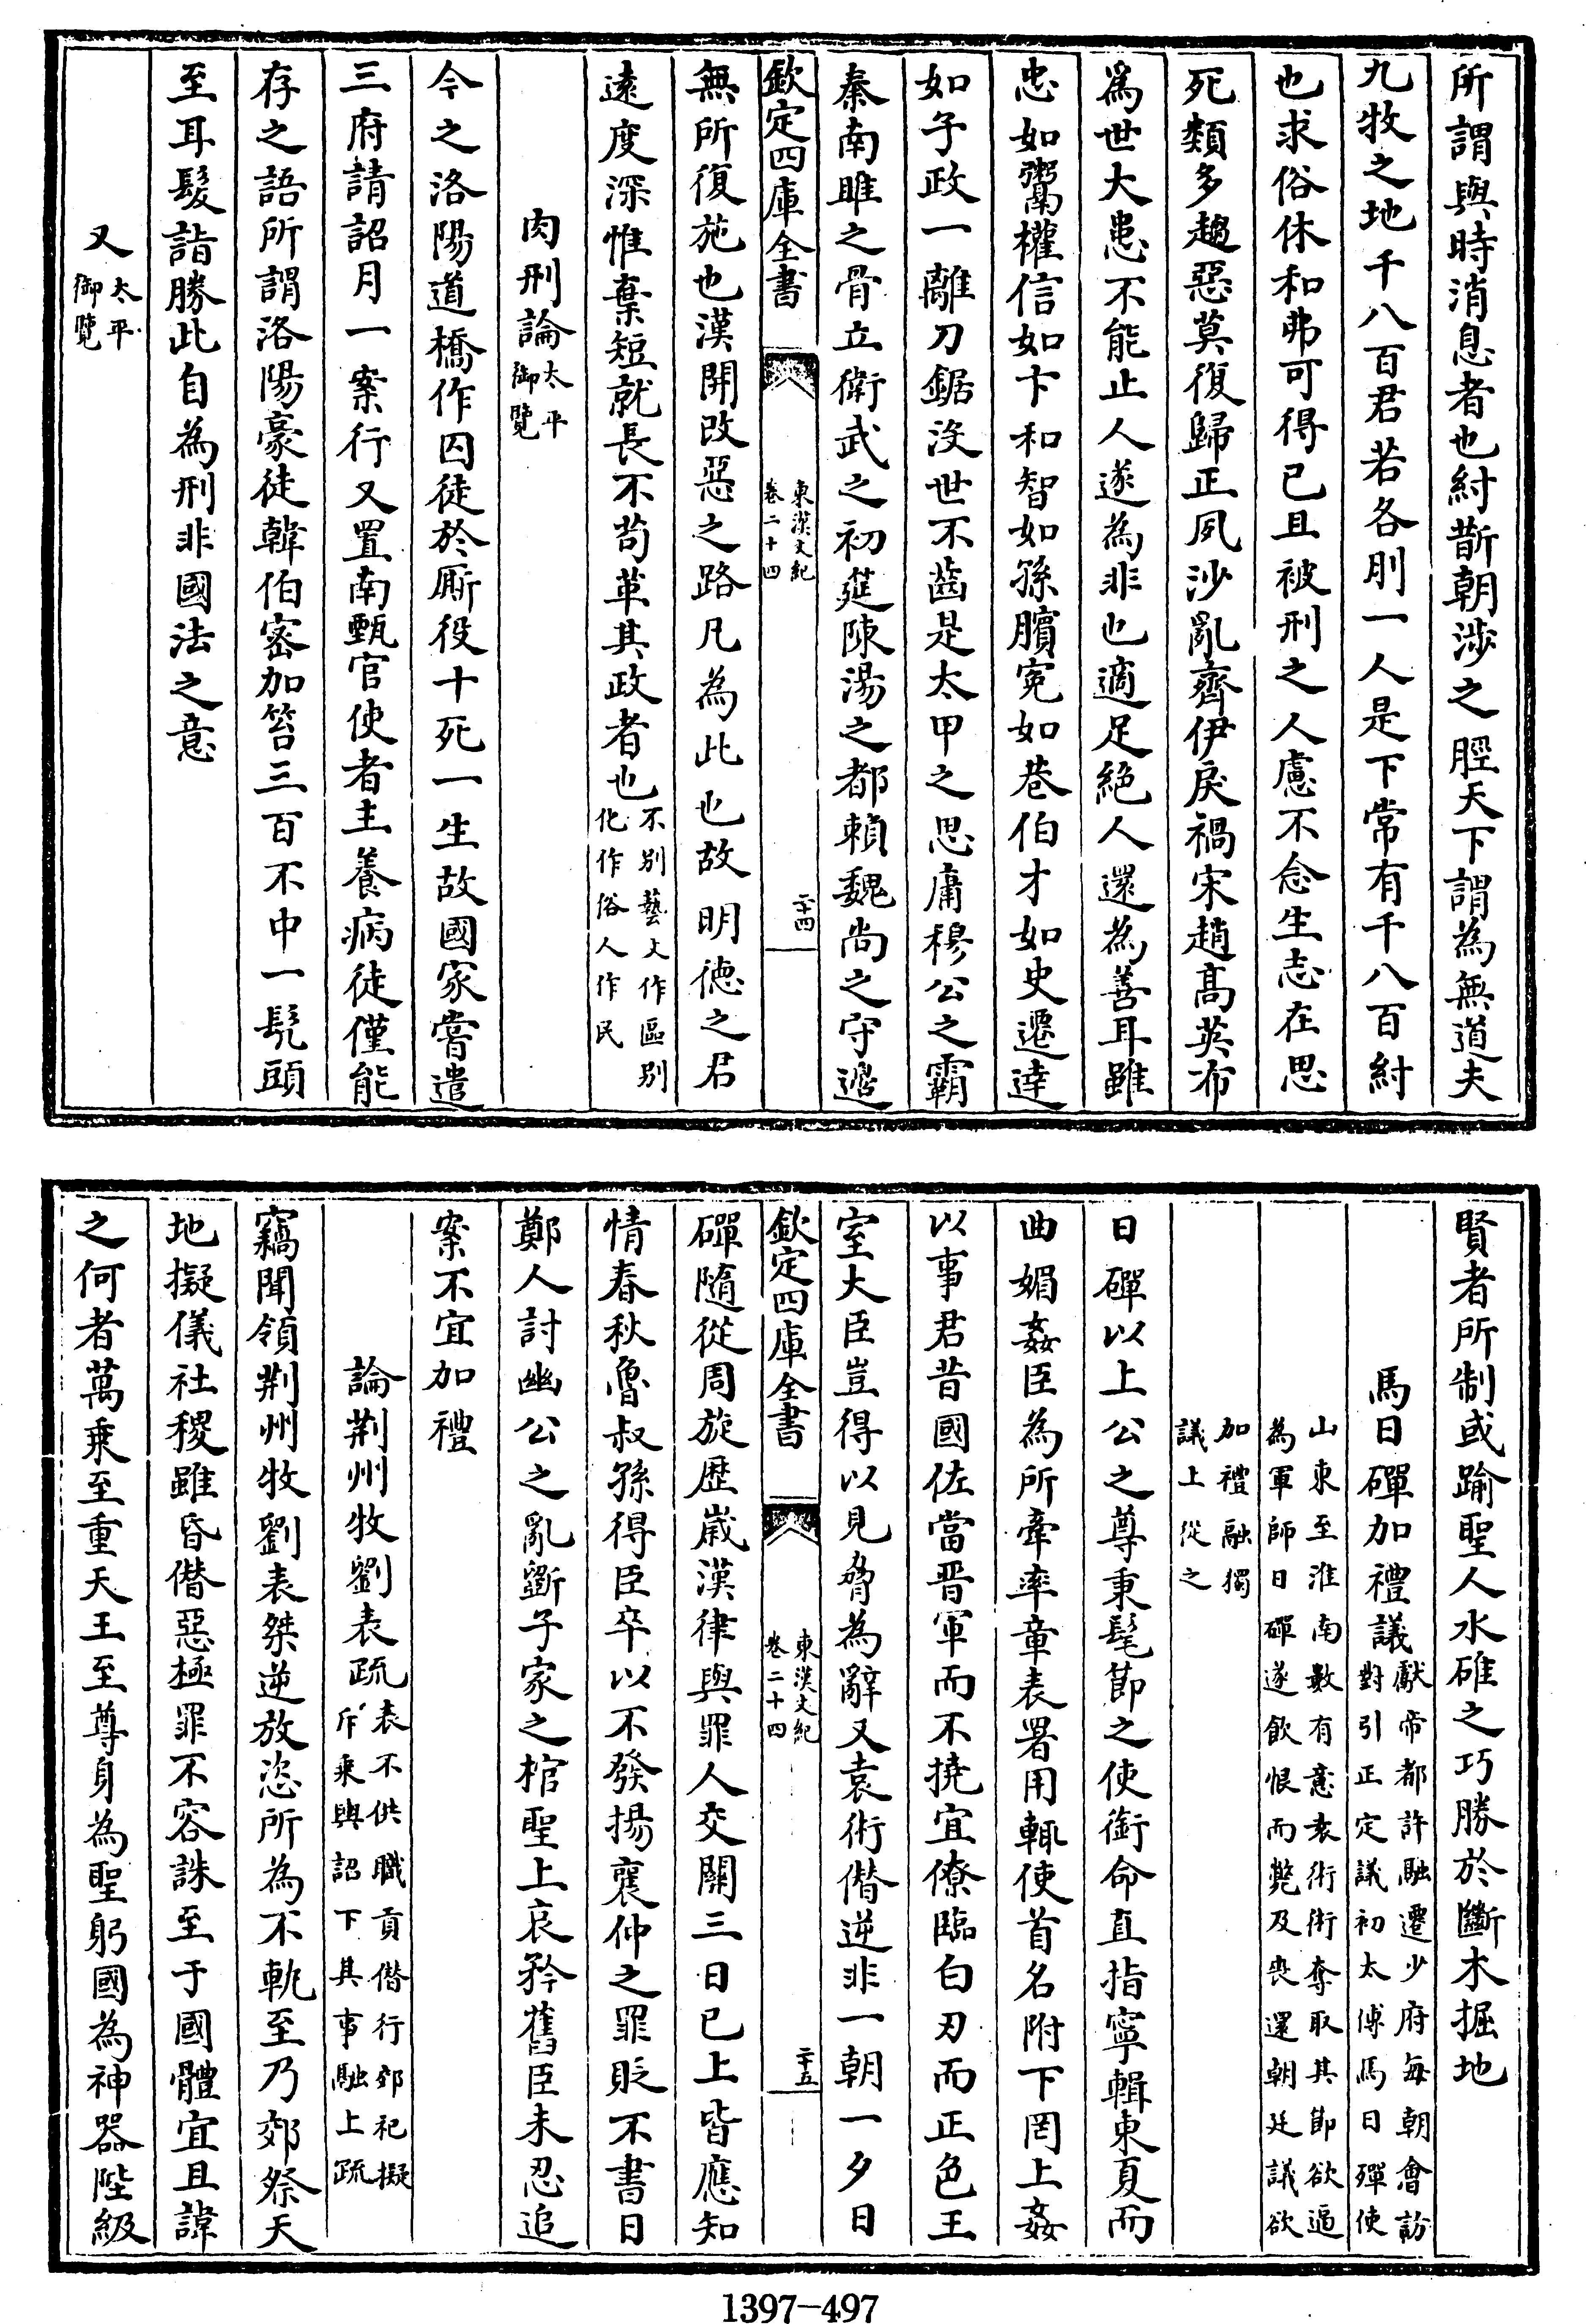 所謂與時消息者也紂斮朝涉之脛天下謂為無道夫
九牧之地千八百君若各刖一人是下常有千八百紂
也求俗休和弗可得已且被刑之人慮不念生志在思
死類多趨惡莫復歸正夙沙亂齊伊戾禍宋趙高英布
為世大患不能止人遂為非也適足絕人還為善耳雖
忠如鬻權信如卞和智如孫臏冤如巷伯才如史遷達
如子政一離刀鋸沒世不齒是太甲之思庸穆公之霸
秦南雎之骨立衛武之初筵陳湯之都賴魏尚之守邊
欽定四庫全書
東漢文紀
卷二十四
二十四
無所復施也漢開改惡之路凡為此也故明德之君
遠度深惟棄短就長不苟革其政者也
不別藝文作區別
化作俗人作民
肉刑論
太平
御覽
今之洛陽道橋作囚徒於厮役十死一生故國家嘗遣
三府請詔月一案行又置南甄官使者主養病徒僅能
存之語所謂洛陽豪徒韓伯密加笞三百不中一髡頭
至耳髮詣勝此自為刑非國法之意
又
太平
御覽
賢者所制或踰聖人水碓之巧勝於斷木掘地
馬日磾加禮議
獻帝都許融遷少府每朝會訪
對引正定議初太傅馬日磾使
山東至淮南數有意袁術術奪取其節欲逼
為軍師日磾遂飲恨而斃及喪還朝廷議欲
加禮融獨
議上從之
日磾以上公之尊秉髦節之使銜命直指寧輯東夏而
曲媚姦臣為所牽率章表署用輒使首名附下罔上姦
以事君昔國佐當晉軍而不撓宜僚臨白刃而正色王
室大臣豈得以見脅為辭又袁術僭逆非一朝一夕日
欽定四庫全書
東漢文紀
卷二十四
二十五
磾隨從周旋歷歲漢律與罪人交關三日已上皆應知
情春秋魯叔孫得臣卒以不發揚襄仲之罪貶不書日
鄭人討幽公之亂斵子家之棺聖上哀矜舊臣未忍追
案不宜加禮
論荆州牧劉表疏
表不供職貢僭行郊祀擬
斥乘輿詔下其事融上疏
竊聞領荆州牧劉表桀逆放恣所為不軌至乃郊祭天
地擬儀社稷雖昏僭惡極罪不容誅至于國體宜且諱
之何者萬乘至重天王至尊身為聖躬國為神器陛級
1397-497